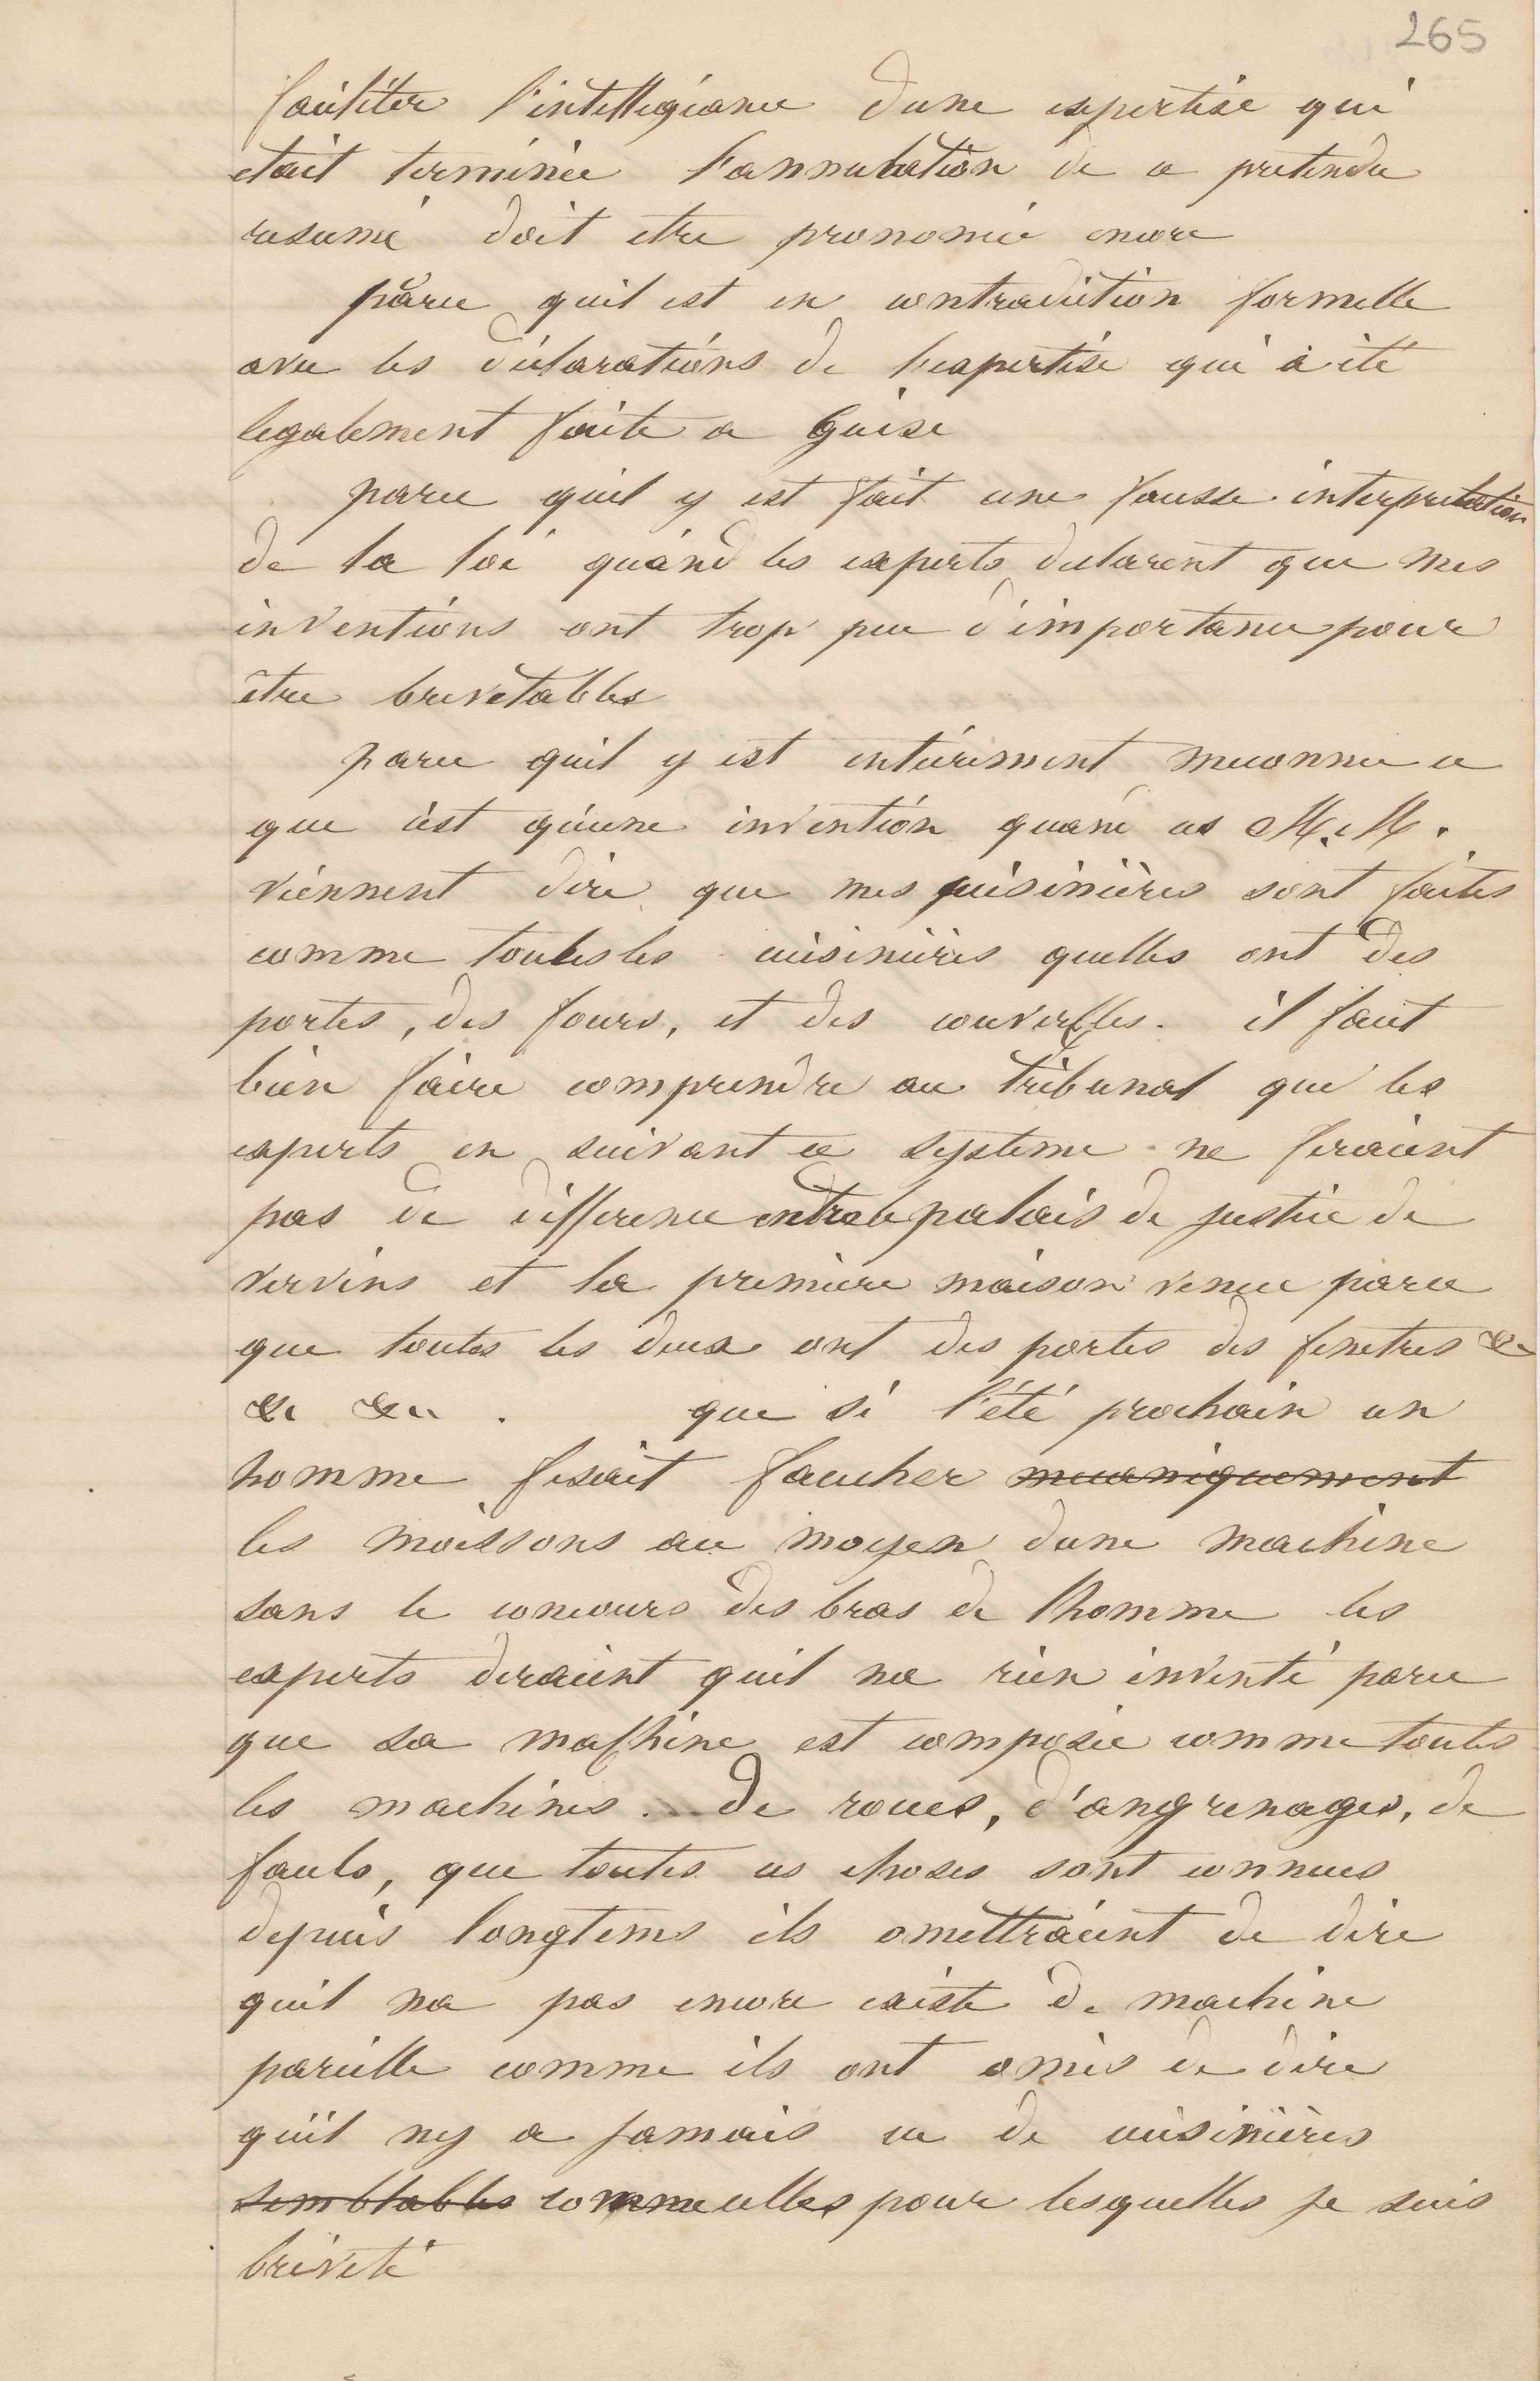 265
faciliter l'intelligeance dune expertise qui
etait terminée l'annulation de ce pretendu
resumé doit etre prononcée encore
parce quil est en contradiction formelle
avec les déclarations de l'expertise qui à été
legalement faite a Guise
parce quil y est fait une fausse interpretation
de la loi quand les experts declarent que mes
inventions ont trop peu d'importance pour
être brevetables
parce quil y est entièrement meconnu ce
que c'est qu'une invention quand ces M.M.
viennent dire que mes cuisinières sont faites
comme toutes les cuisinières quelles ont des
portes, des fours, et des couvercles. il faut
bien faire comprendre au tribunal que les
experts en suivant ce systeme ne feraient
pas de difference entre le palais de justice de
vervins et la premiere maison venue parce
que toutes les deux ont des portes des fenetres &c
&c &c. que si l'été prochain un
homme fesait faucher mecaniquement
les moissons au moyen dune machine
sans le concours des bras de lhomme les
experts diraient quil na rien inventé parce
que sa machine est composée comme toutes
les machines de roues, d'angrenages, de
faulx, que toutes ces choses sont connues
depuis longtems ils omettraient de dire
quil na pas encore existé de machine
pareille comme ils ont omis de dire
quil ny a jamais eu de cuisinières
semblables comme celles pour lesquelles je suis
breveté